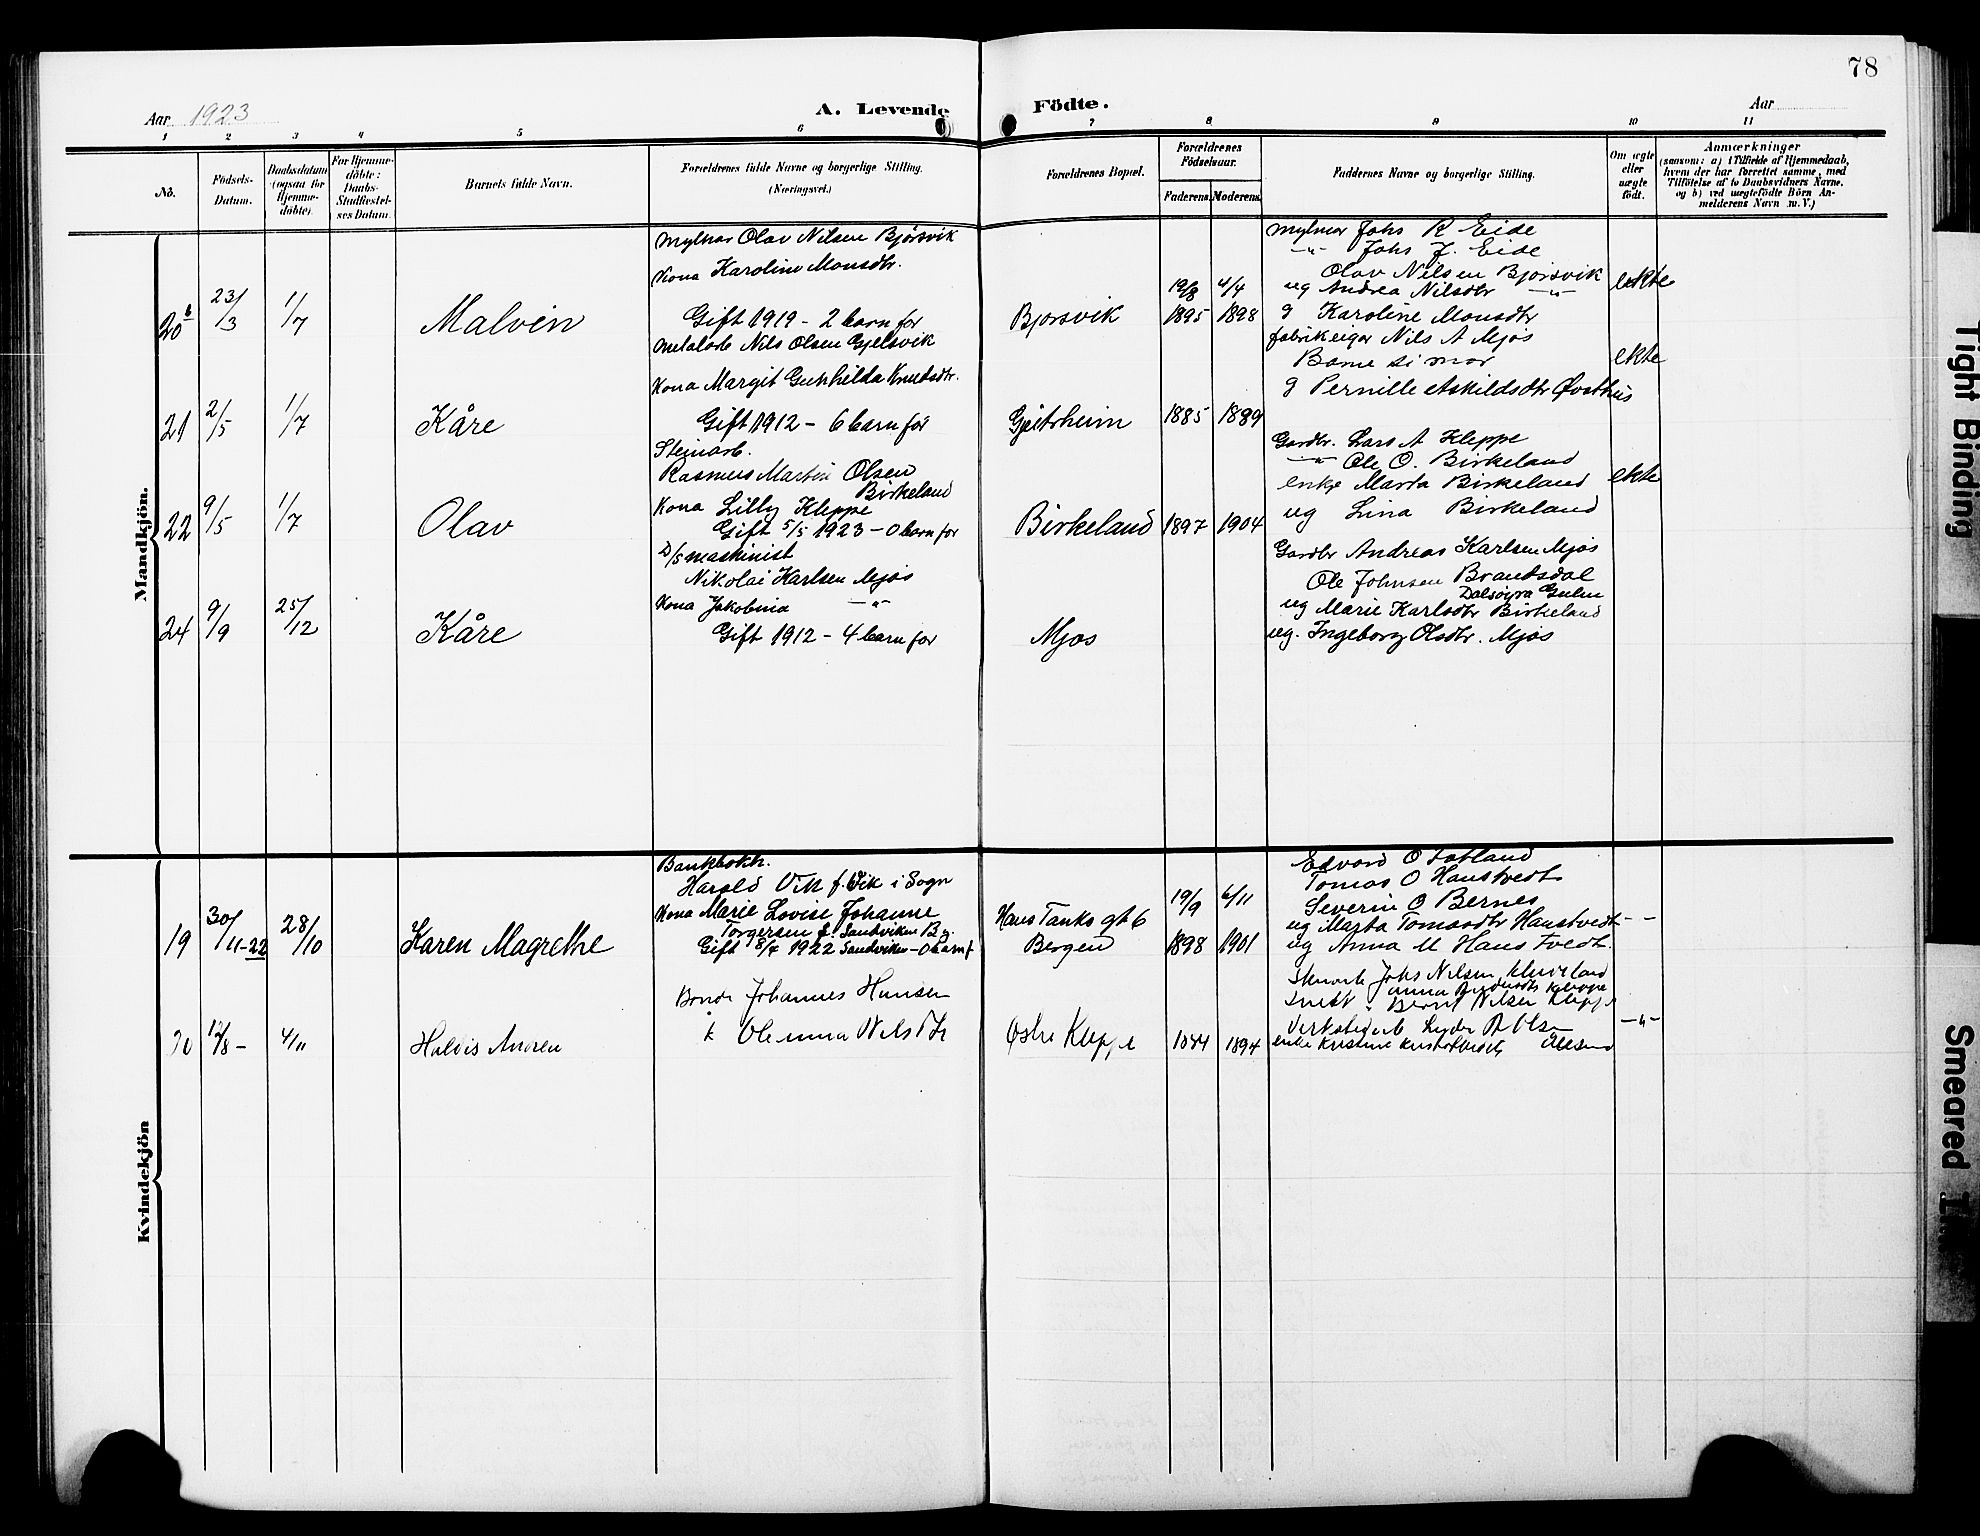 78
Aar 1923
A. Levende Födte.
Aar
1 2 3 4 5 6 7 8 9 10 11
No.
Födsels-Datum.
Daabsdatum (ogsaa for Hjemme-döbte).
For Hjemme-döbte: Daabs-Stadfestel-ses Datum.
Barnets fulde Navn.
Forældrenes fulde Navne og borgerlige Stilling. (Næringsvei.)
Forældrenes Bopæl.
Forældrenes Födselsaar.
Faderens. Moderens.
Faddernes Navne og borgerlige Stilling.
Om ægte eller uægte födt.
Anmærkninger
(saasom: a) i Tilfælde af Hjemmedaab, hvem der har forrettet samme, med Tilföielse af to Daabsvidners Navne. og b) ved uægtefödte Börn An-melderens Navn m. V.)
Mandkjön.
20 b 23/3 1/7 Malvin
mylnar Olav Nilsen Bjørsvik
Kona Karoline Monsdtr.
Gift 1919 - 2 barn før
Bjorsvik
19/8 1895 4/4 1898
mylnar Johs R Eide
-"- Johs J. Eide
Olav Nilsen Bjorsvik
ug Andrea Nilsdtr -"-
g Karoline Monsdtr
ekte
21 2/5 1/7 Kåre
metalarb Nils Olsen Gjelsvik
Kona Margit Gunhilda Knutsdtr.
Gift 1912 - 6 barn før
Gjeitrheim
1885 1889
fabrikeigar Nils A Mjøs
Barne si mor
g Pernille Askildsdtr Øvsthus
ekte
22 9/5 1/7 Olav
Steinarb.
Rasmus Martin Olsen
Birkeland
Kona Lilly Kleppe
Gift 5/5 1923 - 0 barn før
Birkeland
1897 1904
Gardbr. Lars A Kleppe
-"- Ole O. Birkeland
enkje Marta Birkeland
ug Lina Birkeland
ekte
24 9/9 25/12 Kåre
D/S maskinist
Nikolai Karlsen Mjøs
Kona Jakobina -"-
Gift 1912 - 4 barn før
Mjøs
Gardbr Andreas Karlsen Mjøs
Ole Johnsen Brandsdal
Dalsøyra Gulen
ug Marie Karlsdtr Birkeland
ug. Ingeborg Olsdtr. Mjøs
Kvindekjön
19 30/11-22 28/10 Karen Magrethe
Bankbokh.
Harald Vik f. Vik i Sogn
Kona Marie Lovise Johanne
Torgersen f. Sandviken Bg.
Gift 8/4 1922 Sandviken - 0 barn f
Hans Tanks gt 6
Bergen
19/9 1898 6/11 1901
Edvard O Fatland
Tomas O Hanstvedt
Severin O Bernes
ug Marta Tomasdtr Hanstvedt - -
ug Anna M Hanstvedt.
12/8 - 4/11
Bonde Johannes Hansen
k Nilsdtr
Østre Kleppe
1894
Johs Nilsen
Bernt Nilsen Kleppe
enke
-"-
Tight Binding
Smeared